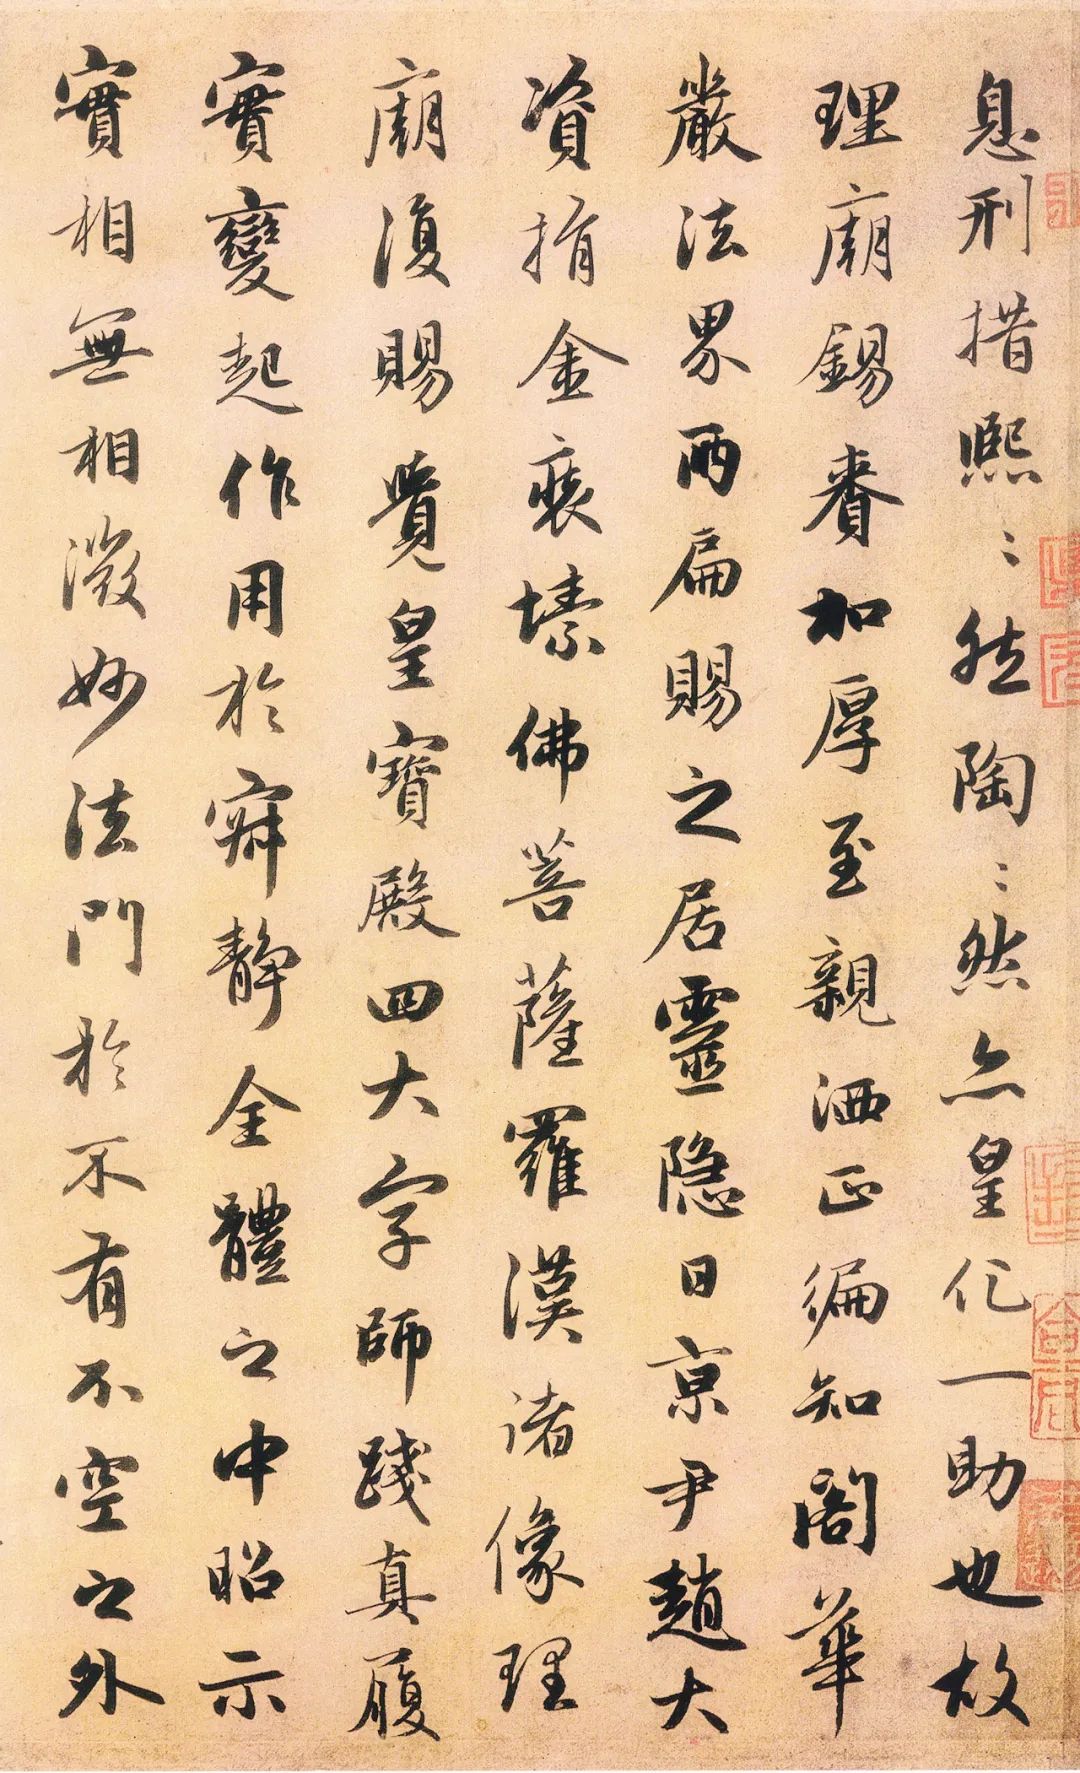 息刑措熙〻然陶〻然亦皇化一助也故
理廟錫賚加厚至親洒正徧知閣華
嚴法界兩扁賜之居靈隱日京尹趙大
資捐金裝塐佛菩薩羅漢諸像理
廟復賜覺皇寶殿四大字師踐真履
實變起作用於寂静全體之中昭示
實相無相微妙法門於不有不空之外